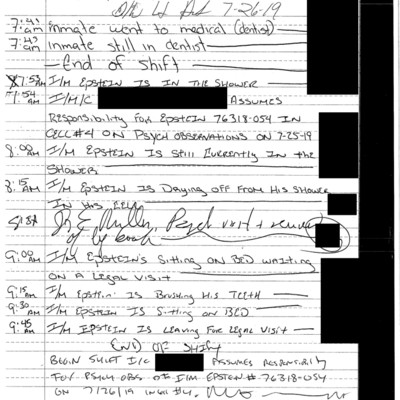 7-26-19
7:41 am inmate went to medical (dentist)
7:43 am inmate still in dentist
End of Shift
7:53 am I/M EPSTEIN IS IN THE SHOWER
7:54 am I/M/C ASSUMES
RESPONSIBILITY FOR EPSTEIN 76318-054 IN
CELL #4 ON PSYCH OBSERVATIONS ON 7-25-19
8:00 am I/M EPSTEIN IS STILL CURRENTLY IN THE
SHOWER
8:15 am I/M EPSTEIN IS DRYING OFF FROM HIS SHOWER
IN HIS CELL
Psych visit +
of
9:00 am I/M EPSTEIN'S SITTING ON BED WAITING
ON A LEGAL VISIT
9:15 am I/M EPSTEIN IS BRUSHING HIS TEETH
9:30 am I/M EPSTEIN IS SITTING ON BED
9:45 am I/M EPSTEIN IS LEAVING FOR LEGAL VISIT
END OF SHIFT
BEGIN SHIFT I/C ASSUMES RESPONSIBILITY
FOR PSYCH OBS OF I/M EPSTEIN # 76318-054
ON 7/26/19 IN CELL #4.